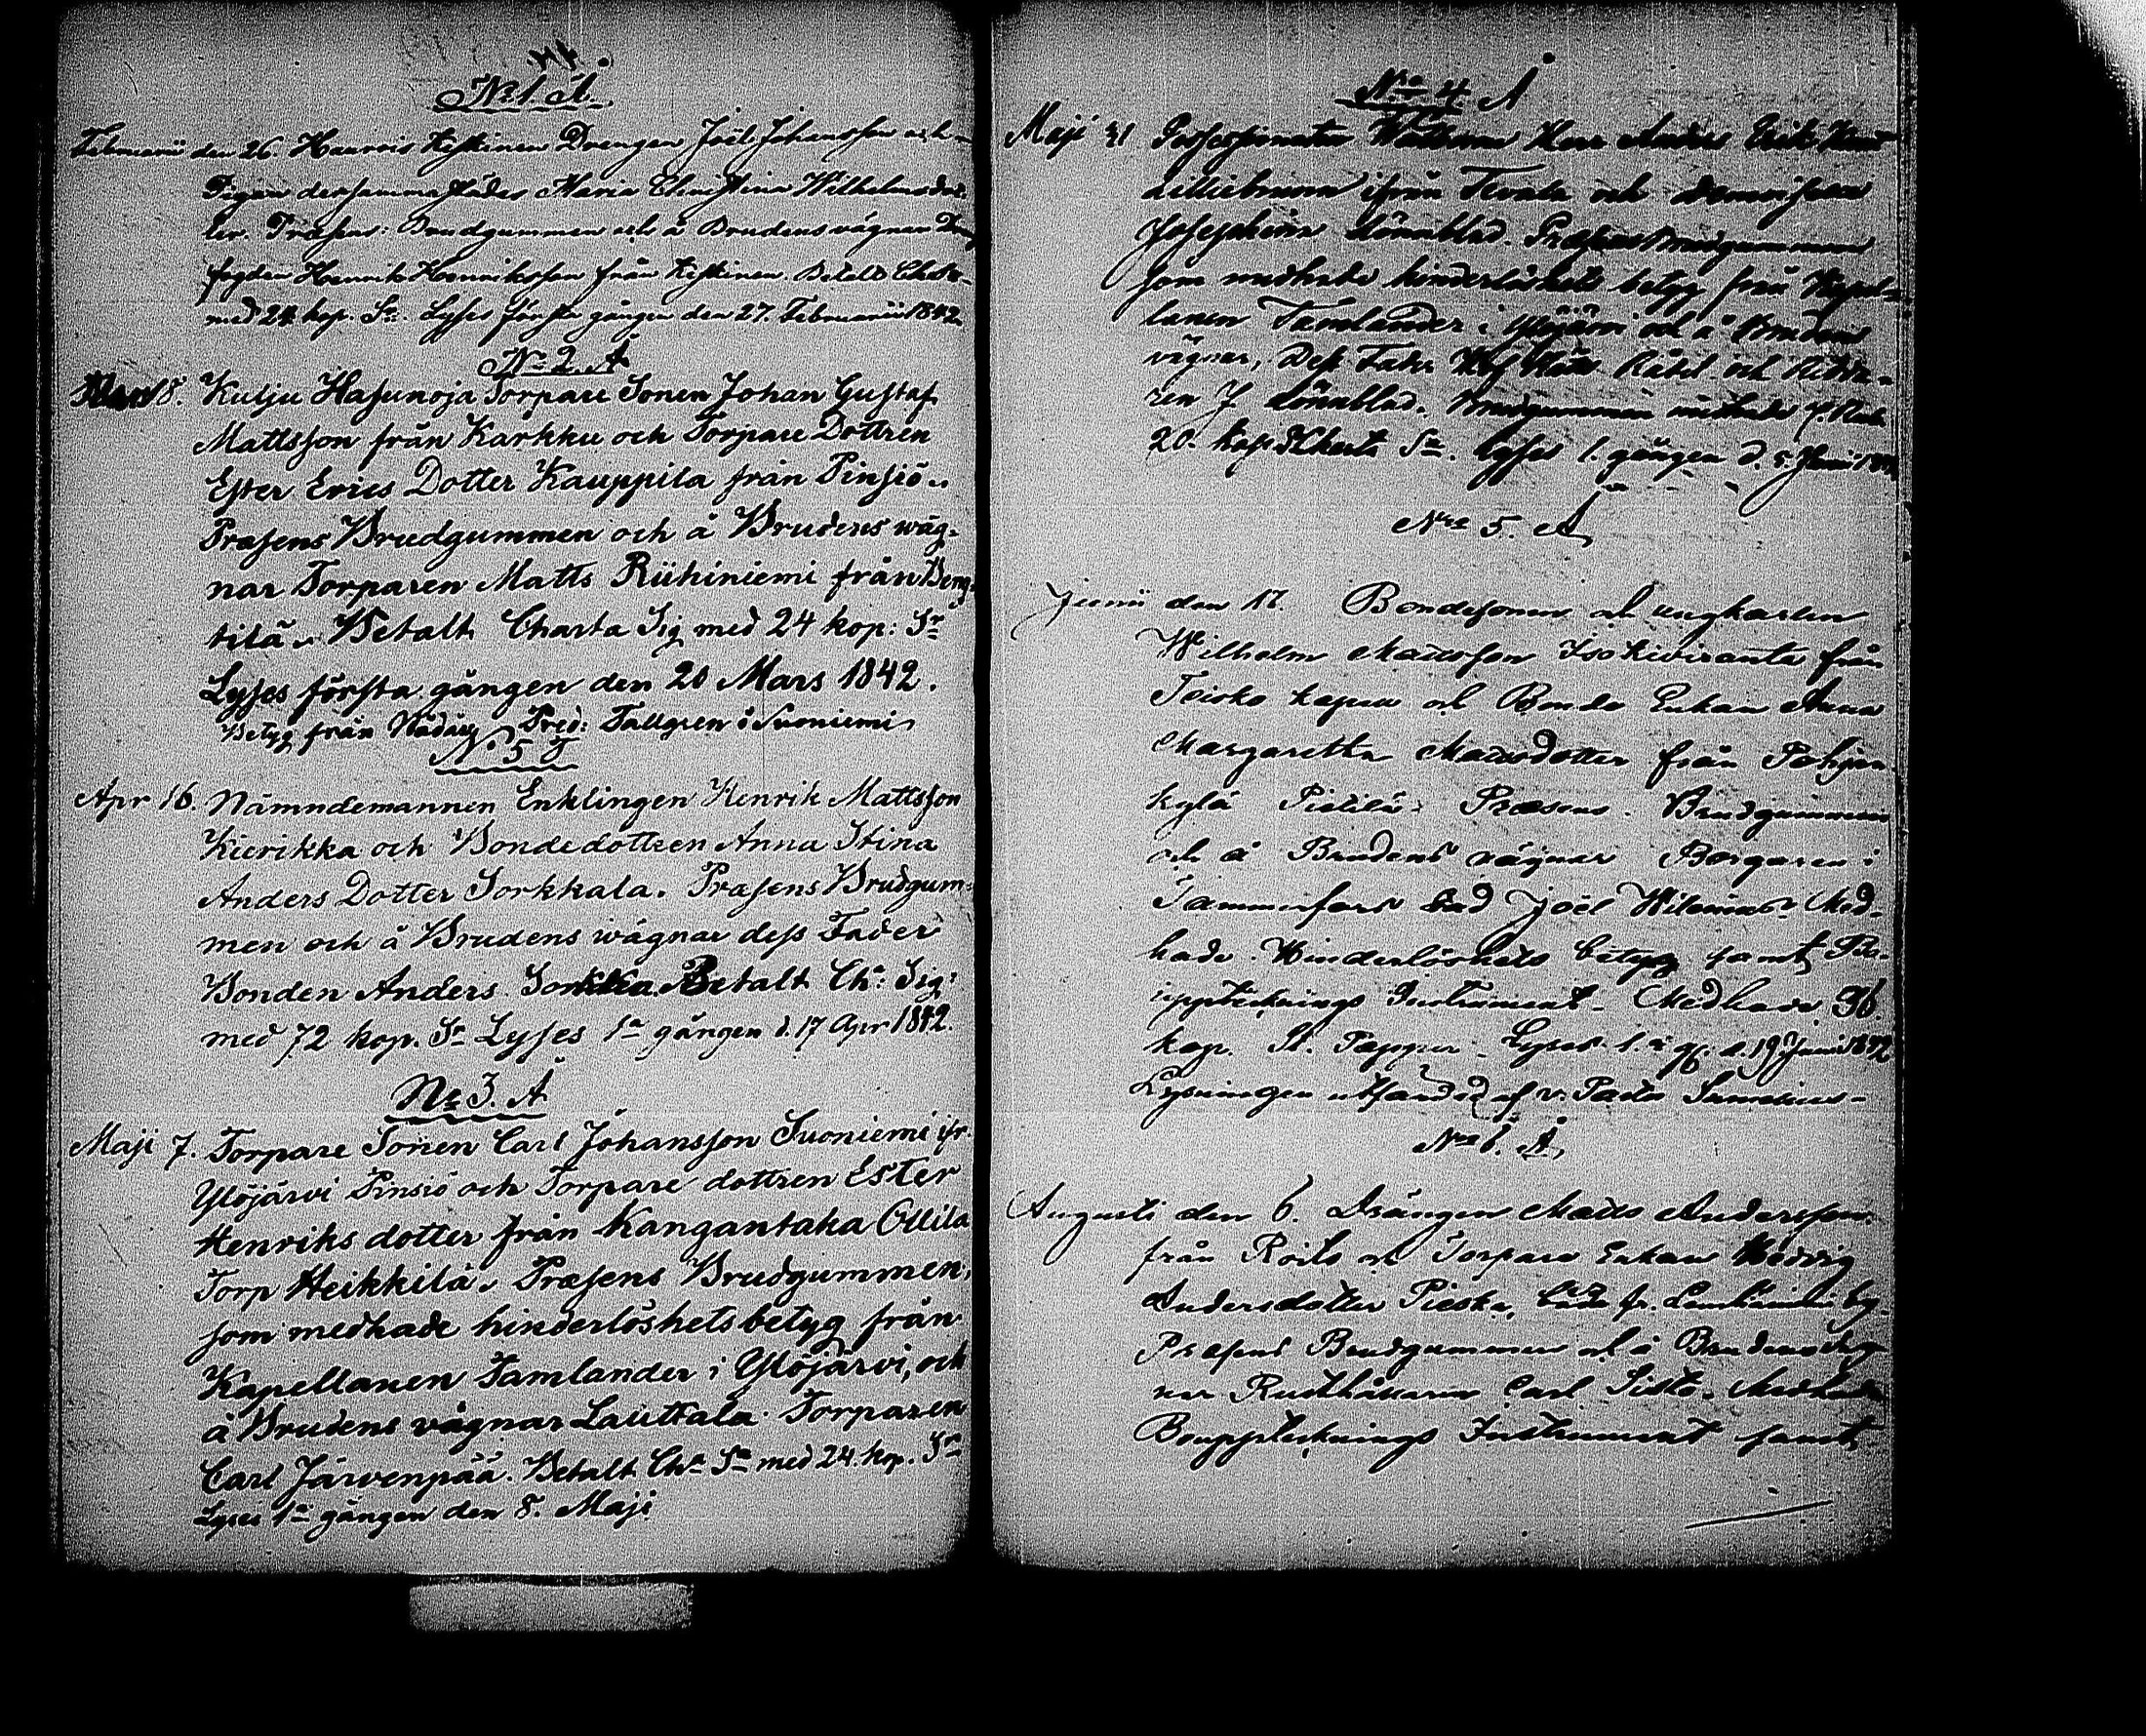 No 1 A.
Februarii den 26. Henric Kestinen Drengen Joël Johansson och
Pigan dersammastädes Maria Christina Wilhelmsdot-
ter. Præsens: Brudgummen och å Brudens vägnar
fogden Henrik Henriksson från Kestinen. Betalt Charta
med 24 kop. Sr. Lyses första gången den 27. Februarii 1842
No 2. A
Mars 18. Kulju Hasunoja Torpare Sonen Johan Gustaf
Mattsson från Karkku och Torpare Dottren
Ester Erics Dotter Kauppila från Pinsiö.
Præsens Brudgummen och å Brudens wäg-
nar Torparen Matts Riihiniemi från Beng-
tilä. Betalt Charta Sig med 24 kop: Sr
Lyses första gången den 20 Mars 1842.
Betyg från Wädig Pred: Tallgren i Suoniemi
N. 5 T
Apr 16. Nämndemannen Enklingen Henrik Mattsson
Kierikka och Bondedottren Anna Stina
Anders Dotter Sorkkala. Præsens Brudgum-
men och å Brudens wägnar dess Fader
Bonden Anders Betalt Cha: Sig:
med 72 kop. Sr Lyses 1a gången d. 17 Apr 1842.
No 3. A
Maji 7. Torpare Sonen Carl Johansson Suoniemi ifr.
Ylöjärvi Pinsiö och Torpare dottren Ester
Henriks dotter från Kangantaka Ollila
Torp Heikkilä. Præsens Brudgummen,
som medhade hinderlöshets betyg från
Kapellanen Tamlander i Ylöjärvi, och
å Brudens vägnar Lauttala Torparen
Carl Järvenpää. Betalt Cha Sa med 24. kop. Sr
Lyses 1a gången den 8. Maji
Nro 4 A
Maji 31 Possessionaten Herr Anders Erik
Lilliebrunn ifrån och Demoisellen
Josephina Lönnblad. Præsens Brudgummen
som medhade hinderlöshets betyg från Kapel-
lanen Tamlander i Ylöjärvi och å Brudens
vägnar, Dess Fader Rådet och Ridda-
ren J Lönnblad. Brudgummen
20. kop Sr. Lyses 1. gången d. 5. Juni
Nro 5. A
Junii den 17. Bondesonen och ungkarlen
Wilhelm Mattsson Isokiviranta från
Teisko kapell och Bonde Enkan Anna
Margaretha Mattsdotter från Pohjan-
kylä Pietilä. Præsens Brudgummen
och å Brudens vägnar Borgaren i
Tammerfors Joël Med-
hade Hinderlöshets betyg samt Bo-
upptecknings Instrument. Medhade 96.
kop. St. Papper. Lyses 1. a g. d. 19 Juni 1842
Lysningen utfärdad af v. Pastor
Nro 6. A
Augusti den 6. Drängen Matts Andersson
från och Torpare Enkan Hedvig
Andersdotter
Præsens Brudgummen och å Brudens väg-
nar Rusthållaren Carl Medhade
Bouppteknings Instrument samt